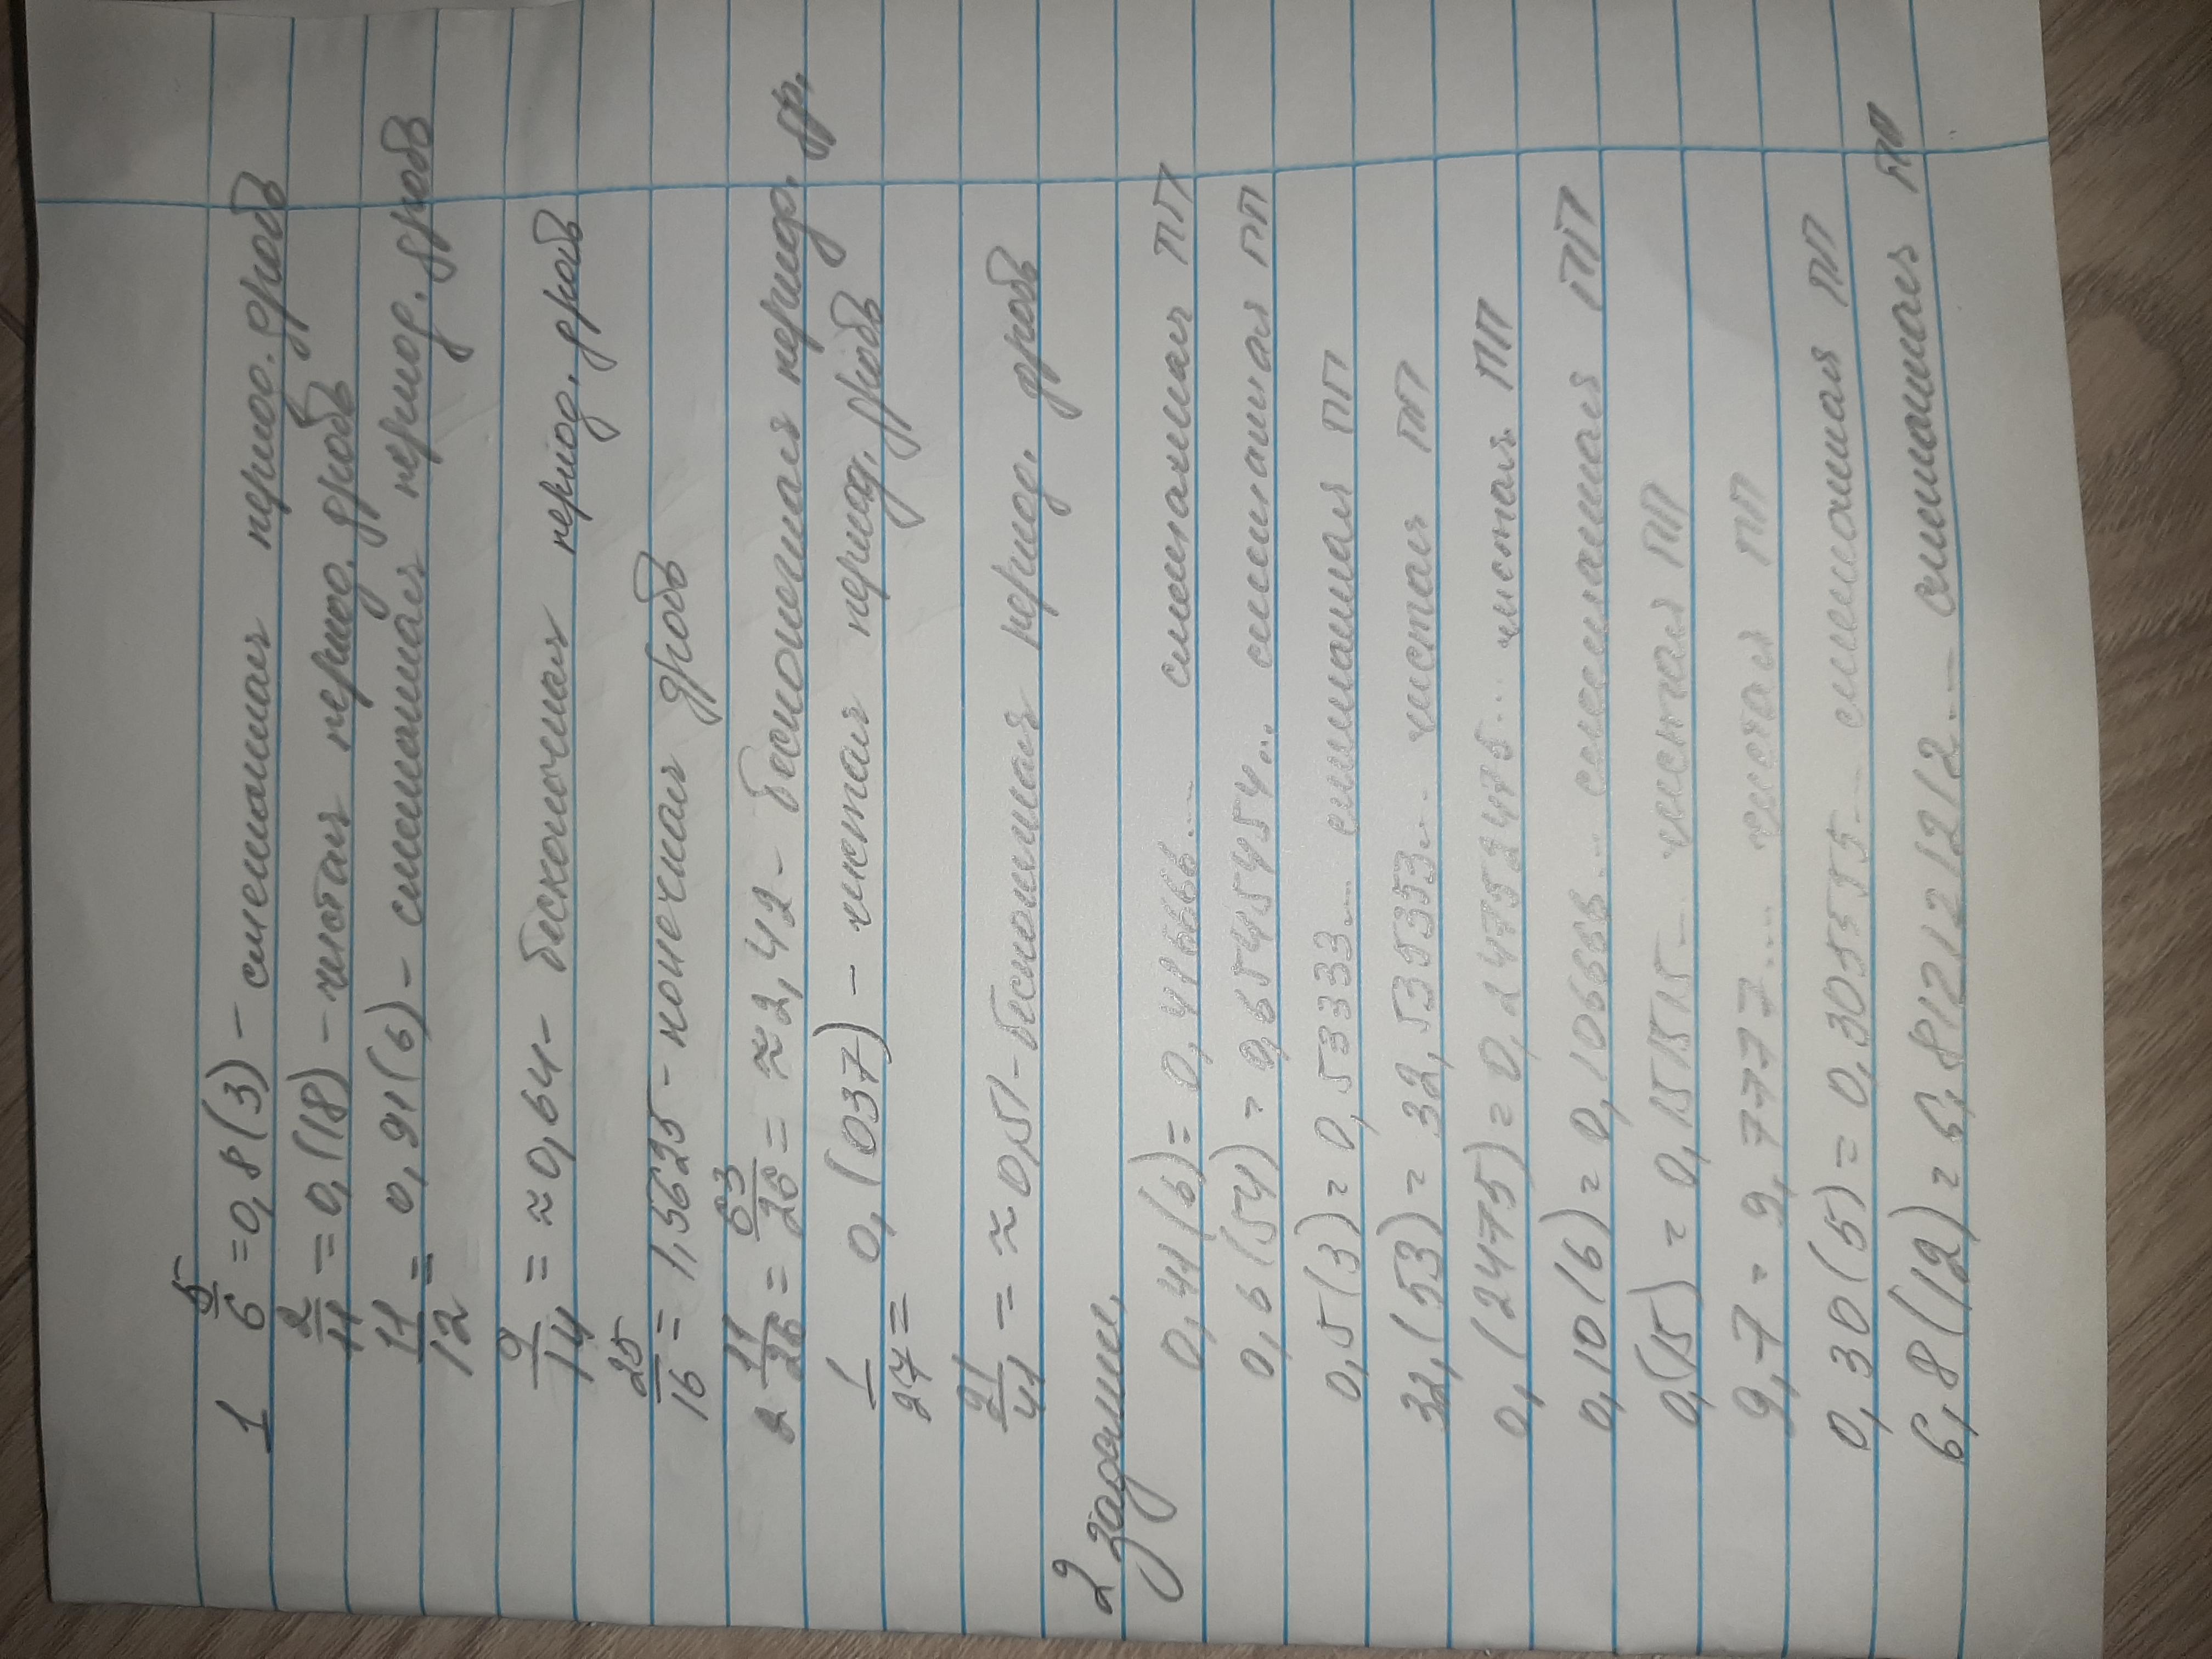 1 5/6 = 0,8(3) - смешанная период. дробь
2/11 = 0,(18) - чистая период. дробь
11/12 = 0,91(6) - смешанная период. дробь
9/14 = ≈ 0,64 - бесконечная период. дробь
25/16 = 1,5625 - конечная дробь
2 11/26 = 63/26 = ≈ 2,42 - бесконечная период. др.
1/27 = 0,(037) - чистая период. дробь
21/41 = ≈ 0,51 - бесконечная период. дробь
2 задание.
0,41(6) = 0,41666... смешанная ПП
0,6(54) = 0,6545454... смешанная ПП
0,5(3) = 0,53333... смешанная ПП
32,(53) = 32,535353... чистая ПП
0,(2475) = 0,24752475... чистая ПП
0,10(6) = 0,10666... смешанная ПП
0,(15) = 0,151515... чистая ПП
9,7 = 9,7777... чистая ПП
0,30(5) = 0,305555... смешанная ПП
6,8(12) = 6,812121212... смешанная ПП